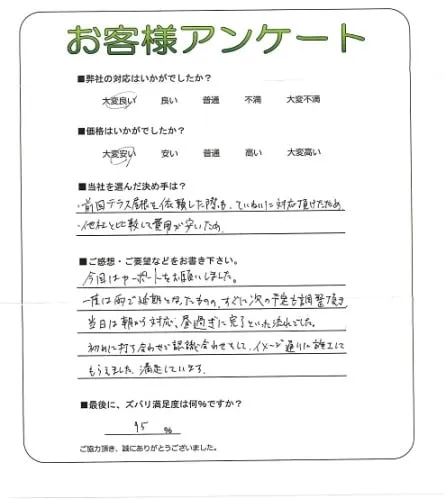 お客様アンケート
■弊社の対応はいかがでしたか?
大変良い 良い 普通 不満 大変不満
■価格はいかがでしたか?
大変安い 安い 普通 高い 大変高い
■当社を選んだ決め手は?
・前回テラス屋根を依頼した際も、ていねいに対応頂けたため
・他社と比較して費用が安いため
■ご感想・ご要望などをお書き下さい。
今回はカーポートをお願いしました。
一度は雨で延期となったものの、すぐに次の予定も調整頂き
当日は朝から対応、昼過ぎに完了といった流れでした。
初めに打ち合わせで認識合わせをして、イメージ通りに施工して
もらえました。満足しています。
■最後に、ズバリ満足度は何%ですか?
95 %
ご協力頂き、誠にありがとうございました。